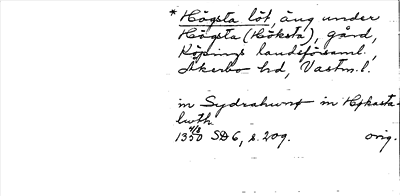 * Högsta löt, äng under
Högsta (Höksta), gård,
Köpings landsförsaml.,
Åkerbo hd, Västm. l.
in Sydrahurst in Högasta-
lwth
1350 4/8 SD 6, s. 209. orig.